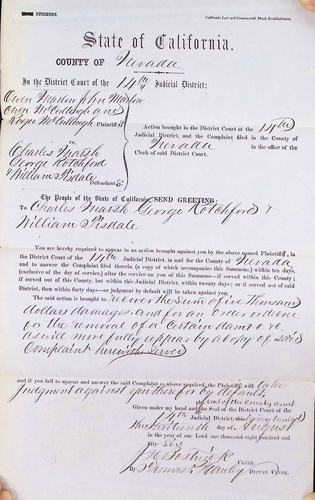 SUMMONS.
California Law and Commercial Blank Establishment.
State of California.
COUNTY OF Nevada
In the District Court of the 14th Judicial District:
Owen Marlow John Marlow
Owen McCullough and
Roger McCullough Plaintiffs
vs.
Charles Marsh
George Rotchford
& William Tisdale
Defendants.
Action brought in the District Court of the 14th
Judicial District, and the Complaint filed in the County of
Nevada in the office of the
Clerk of said District Court.
The People of the State of California SEND GREETING:
To Charles Marsh George Rotchford &
William Tisdale
You are hereby required to appear in an action brought against you by the above named Plaintiffs, in
the District Court of the 14th Judicial District, in and for the County of Nevada
and to answer the Complaint filed therein, (a copy of which accompanies this Summons,) within ten days,
(exclusive of the day of service) after the service on you of this Summons—if served within this County; if
served out of this County, but within this Judicial District, within twenty days; or if served out of said
District, then within forty days—or judgment by default will be taken against you.
The said action is brought to recover the Sum of Thousand
dollars damages and for an order
for the removal of a certain dam
as will more fully appear by a copy of said
Complaint herewith served
and if you fail to appear and answer the said Complaint as above required, the Plaintiffs will take
judgment against you by default
Given under my hand and the Seal of the District Court of the
14th Judicial District,
this thirteenth day of August
in the year of our Lord one thousand eight hundred and
fifty Six
CLERK.
By Thomas DEPUTY CLERK.